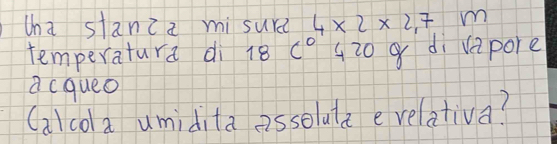 Una stanza misura 4 x 2 x 2,7 m
temperatura di 18 C° 420 g di vapore
acqueo
Calcola umidita assoluta e relativa?